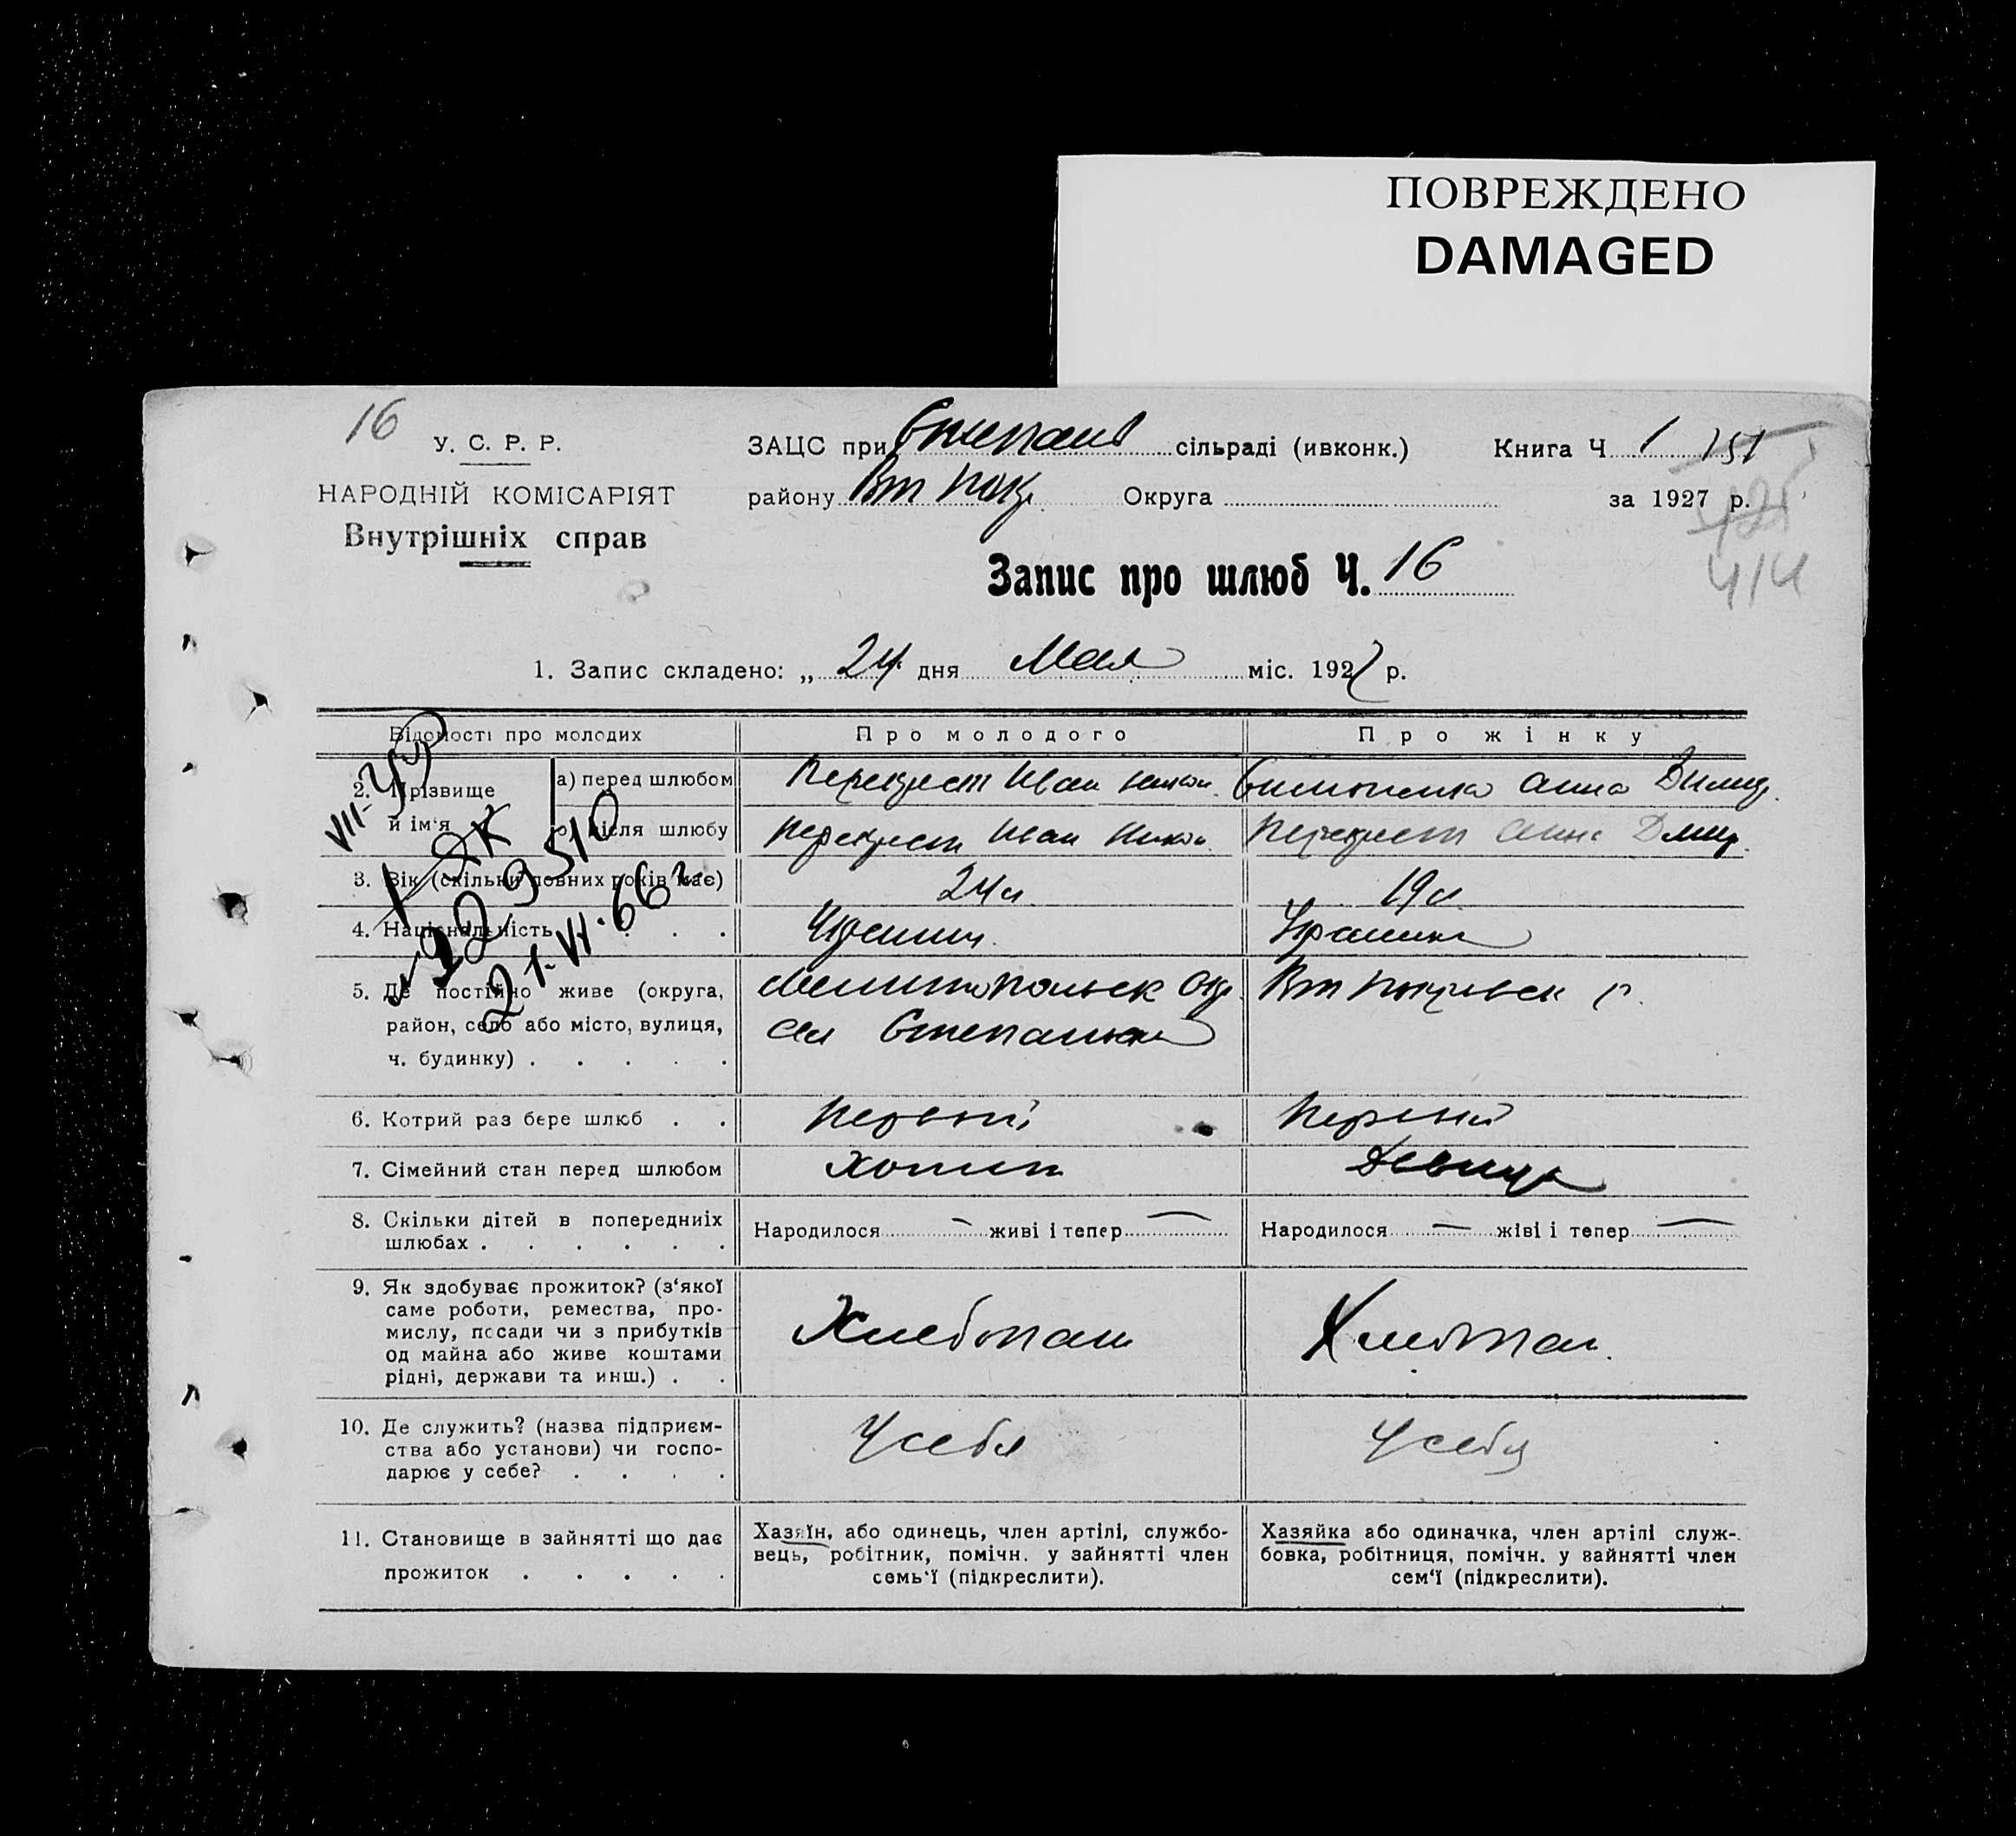 ПОВРЕЖДЕНО
DAMAGED
16
У. С. Р. Р.
НАРОДНІЙ КОМІСАРІЯТ
Внутрішніх справ
ЗАЦС при Степанів сільраді (ивконк.)
району Вт Покр. Округа
Книга Ч 1 151
за 1927 р.
414
Запис про шлюб Ч. 16
1. Запис складено: „ 24 дня Мая міс. 1927 р.
Відомості про молодих
Про молодого
Про жінку
2. Прізвище й ім'я
а) перед шлюбом
Перекрест Иван Никол.
Анна Димид.
б) після шлюбу
Перекрест Иван Никол.
Перекрест Анна Дмир.
3. Вік (скільки повних років має)
24 л
19 л
4. Національність . . .
Украинец
Украинка
5. Де постійно живе (округа,
район, село або місто, вулиця,
ч. будинку) . . . . .
Мелитопольск Окр.
сел Степановка
Вт Покровск р.
6. Котрий раз бере шлюб . .
Первый
Первый
7. Сімейний стан перед шлюбом
Холост
Девица
8. Скільки дітей в попередниіх
шлюбах . . . . . .
Народилося — живі і тепер —
Народилося — жіві і тепер —
9. Як здобуває прожиток? (з'якої
саме роботи, ремества, про-
мислу, посади чи з прибутків
од майна або живе коштами
рідні, держави та инш.) . .
Хлебопаш
Хлебопаш.
10. Де служить? (назва підприєм-
ства або установи) чи госпо-
дарює у себе? . . . .
У себя
У себя
11. Становище в зайнятті що дає
прожиток . . . . .
Хазяїн, або одинець, член артілі, службо-
вець, робітник, помічн. у зайнятті член
семь'ї (підкреслити).
Хазяйка або одиначка, член артілі служ-
бовка, робітниця, помічн. у зайнятті член
сем'ї (підкреслити).
VII-УР
1-ЯК
№ 929510
21-VI-66 г.